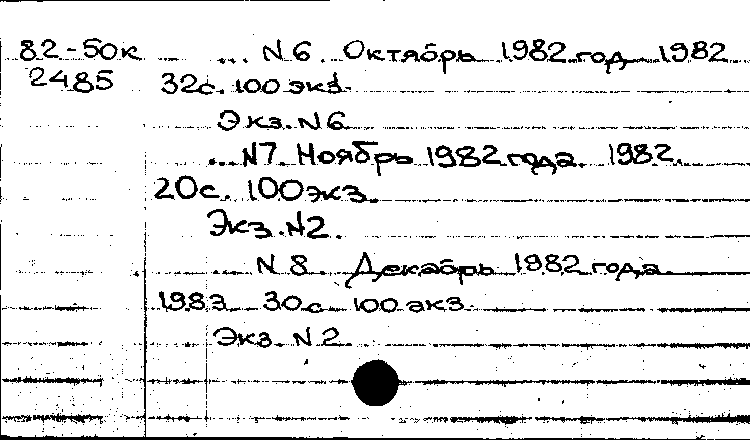 82-50к ... N6. Октябрь 1982 год 1982
2485 32с. 100 экз.
Экз. N6
... N7. Ноябрь 1982 года. 1982.
20с. 100 экз.
Экз. N2.
... N 8. Декабрь 1982 года.
1983 30с 100 экз.
Экз. N 2.